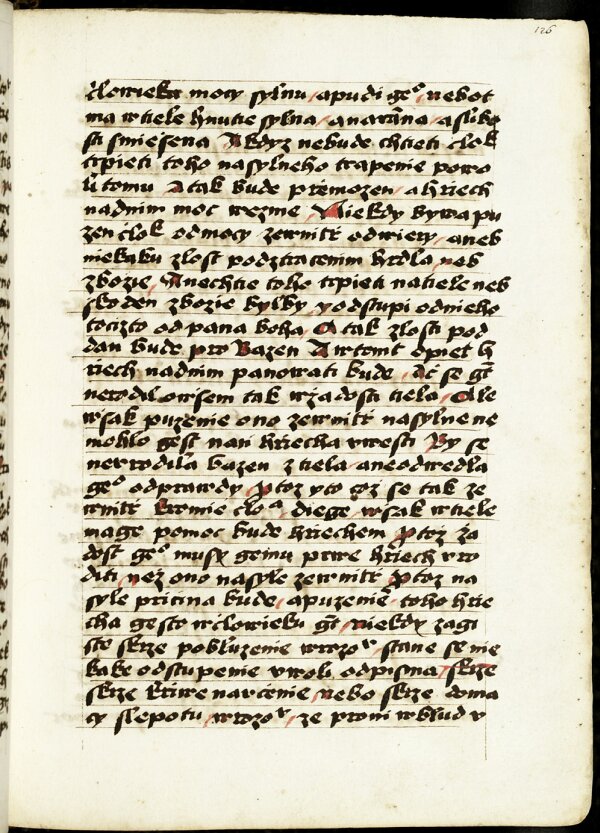 126
człowieka mocy sylnu apudi geͦ nebot
ma wtiele hnutie sylna anarāne aslibo
sti smiesena A kdyz nebude chtieti clok
trpieti toho nasylneho trapenie powo
li tomu A tak bude přemozen ahriech
nadnim moc wezme Niekdy bywa pu
zen člok odmocy zewnitř odwiery aneb
niekaku zlost podztracenim hrdla neb
zbozie A nechtie toho trpieti natiele neb
skoden zbozie bylby yodstupi odnieho
tocizto odpana boha A tak zlosti pod
dan bude pro bazen A wtomt opiet h
riech nadnim panowati bude Ač se gt
nerodil owsem tak wžadosti tiela Ale
wsak puzenie ono zewnitř nasylne ne
mohlo gest nan hřiecha uwesti By se
newrodila bazen ztiela aneodwedla
geͦ odprawdy Protoz yto coz se tak ze
wnitř kromie cloͣ diege wsak wtiele
mage pomoc bude hřiechem Protoz žá
dost geͦ musy gemu prwe hřiech uro
diti než ono nasyle zewnitř Protoz na
syle pricina bude apuzenie toho hrie
cha gesto wclowieku gt Niekdy zagi
ste skrze pobluzenie wrozoͮ stane se nie
kake odstupenie uwoli odpisma skrze
skrze křiwe narcenie nebo skrze doma
cy slepotu wrozoͮ ze prwni wblud u